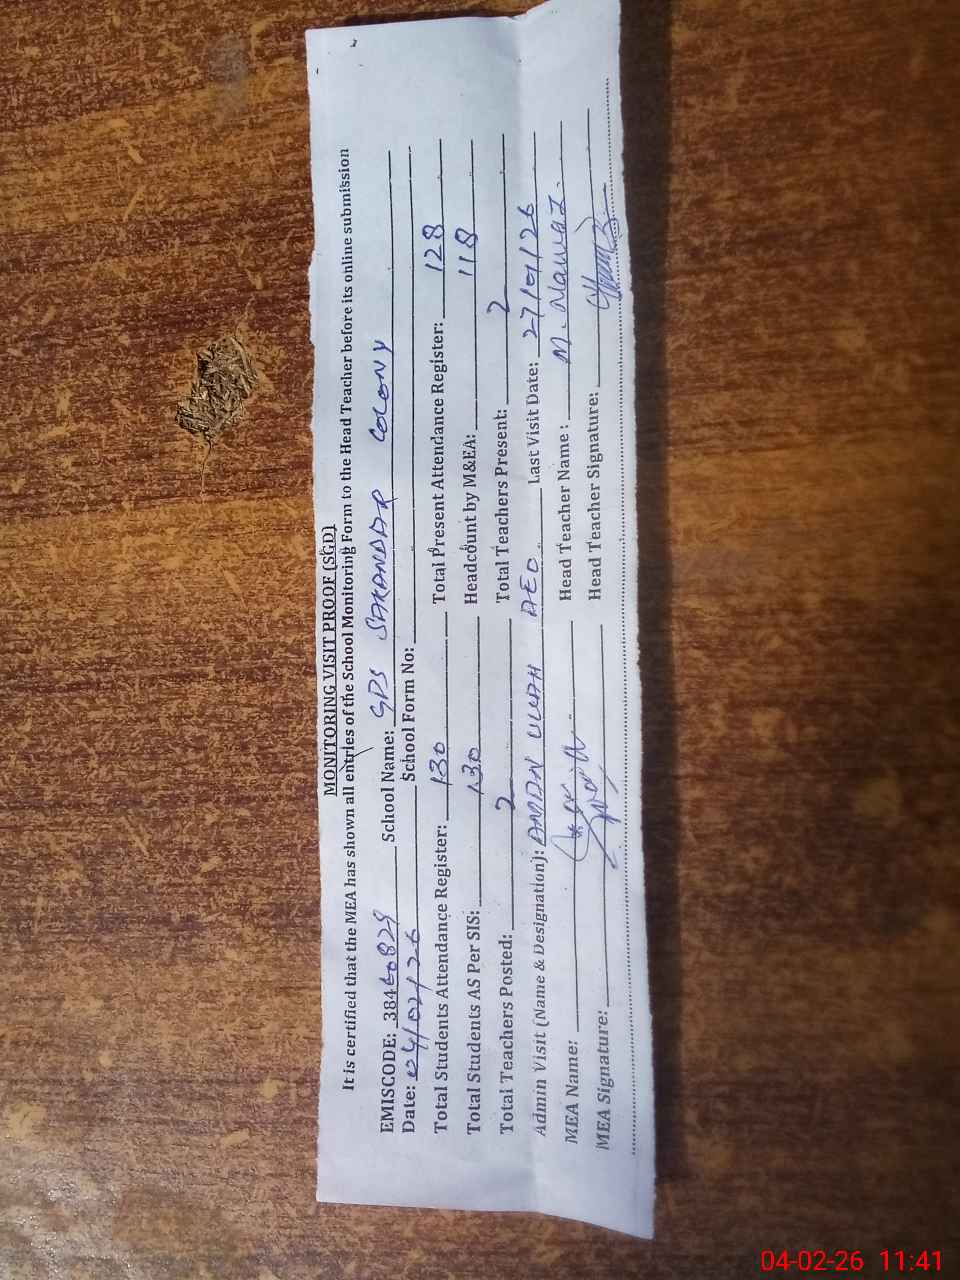 MONITORING VISIT PROOF (SGD)
It is certified that the MEA has shown all entries of the School Monitoring Form to the Head Teacher before its online submission
EMISCODE: 38460829 School Name: GPS SAKANDAR COLONY
Date: 04/02/26 School Form No:
Total Students Attendance Register: 130 Total Present Attendance Register: 128
Total Students AS Per SIS: 130 Headcount by M&EA: 118
Total Teachers Posted: 2 Total Teachers Present: 2
Admin Visit (Name & Designation): AMAN ULLAH AEO. Last Visit Date: 27/01/26
MEA Name: Head Teacher Name : M. Nawaz.
MEA Signature: Head Teacher Signature:
04-02-26 11:41